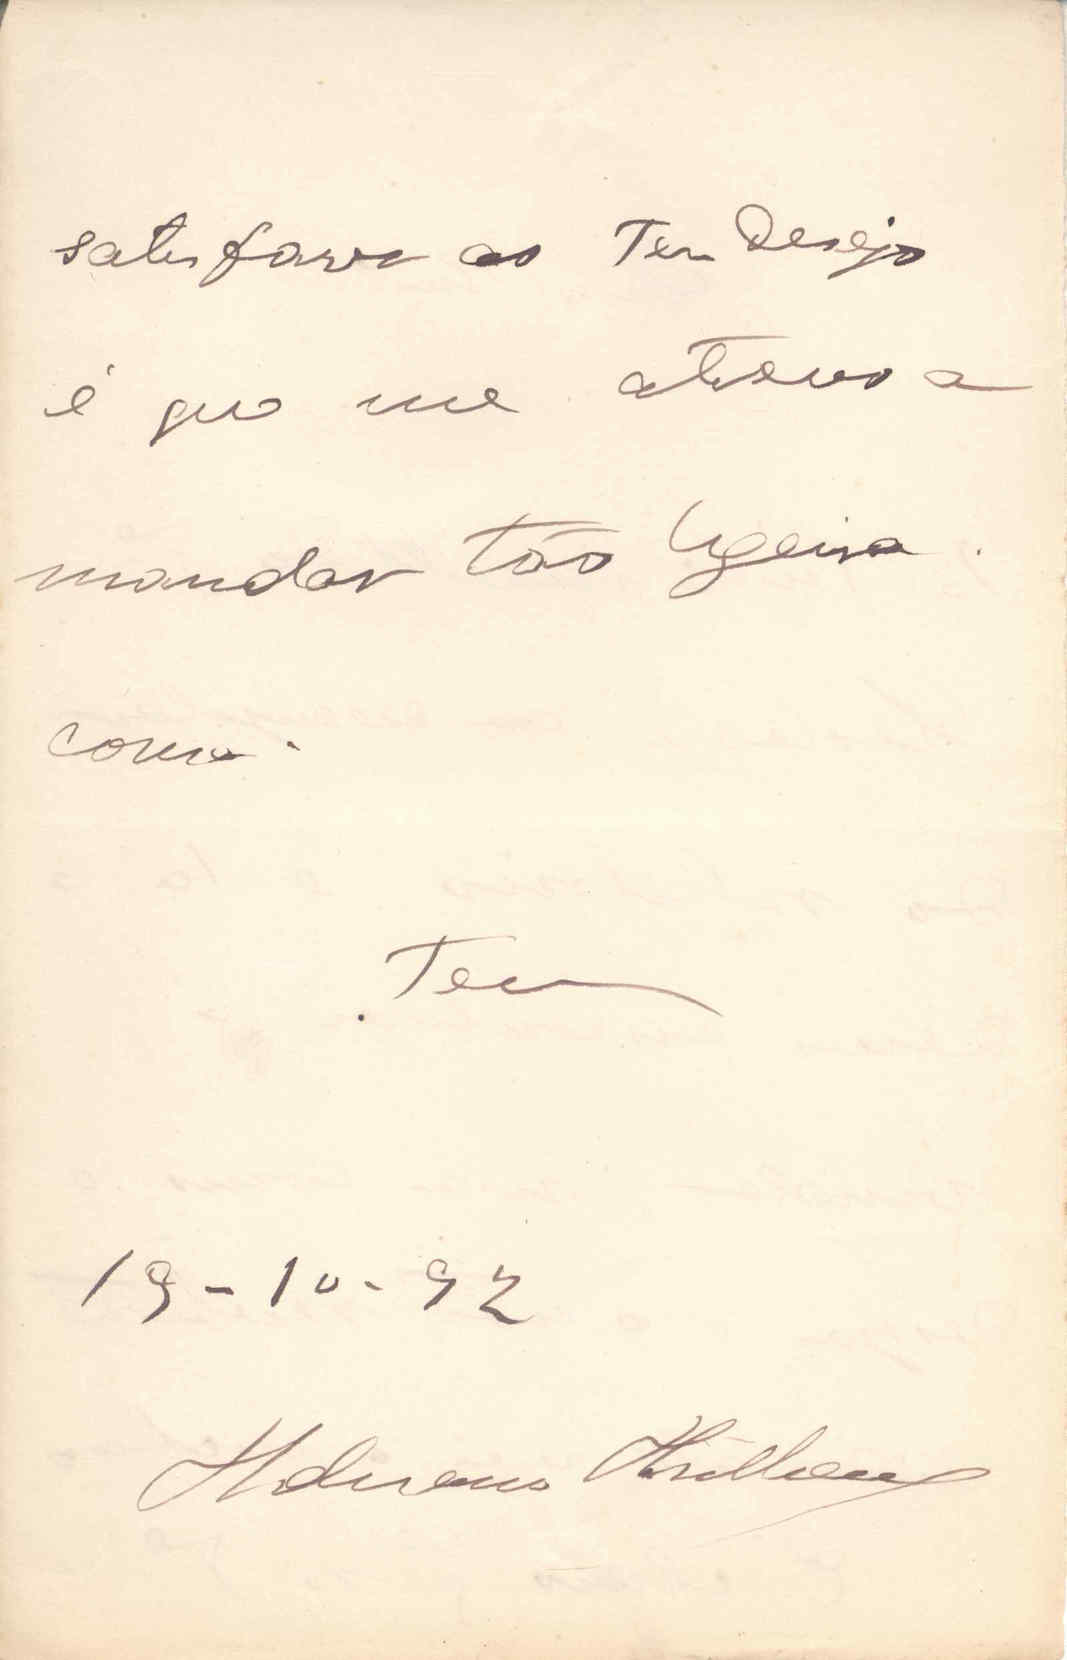 satisfazer ao Teu Desejo
é que me atrevo a
mandar tão ligeira
cousa.
Teu
19-10-92